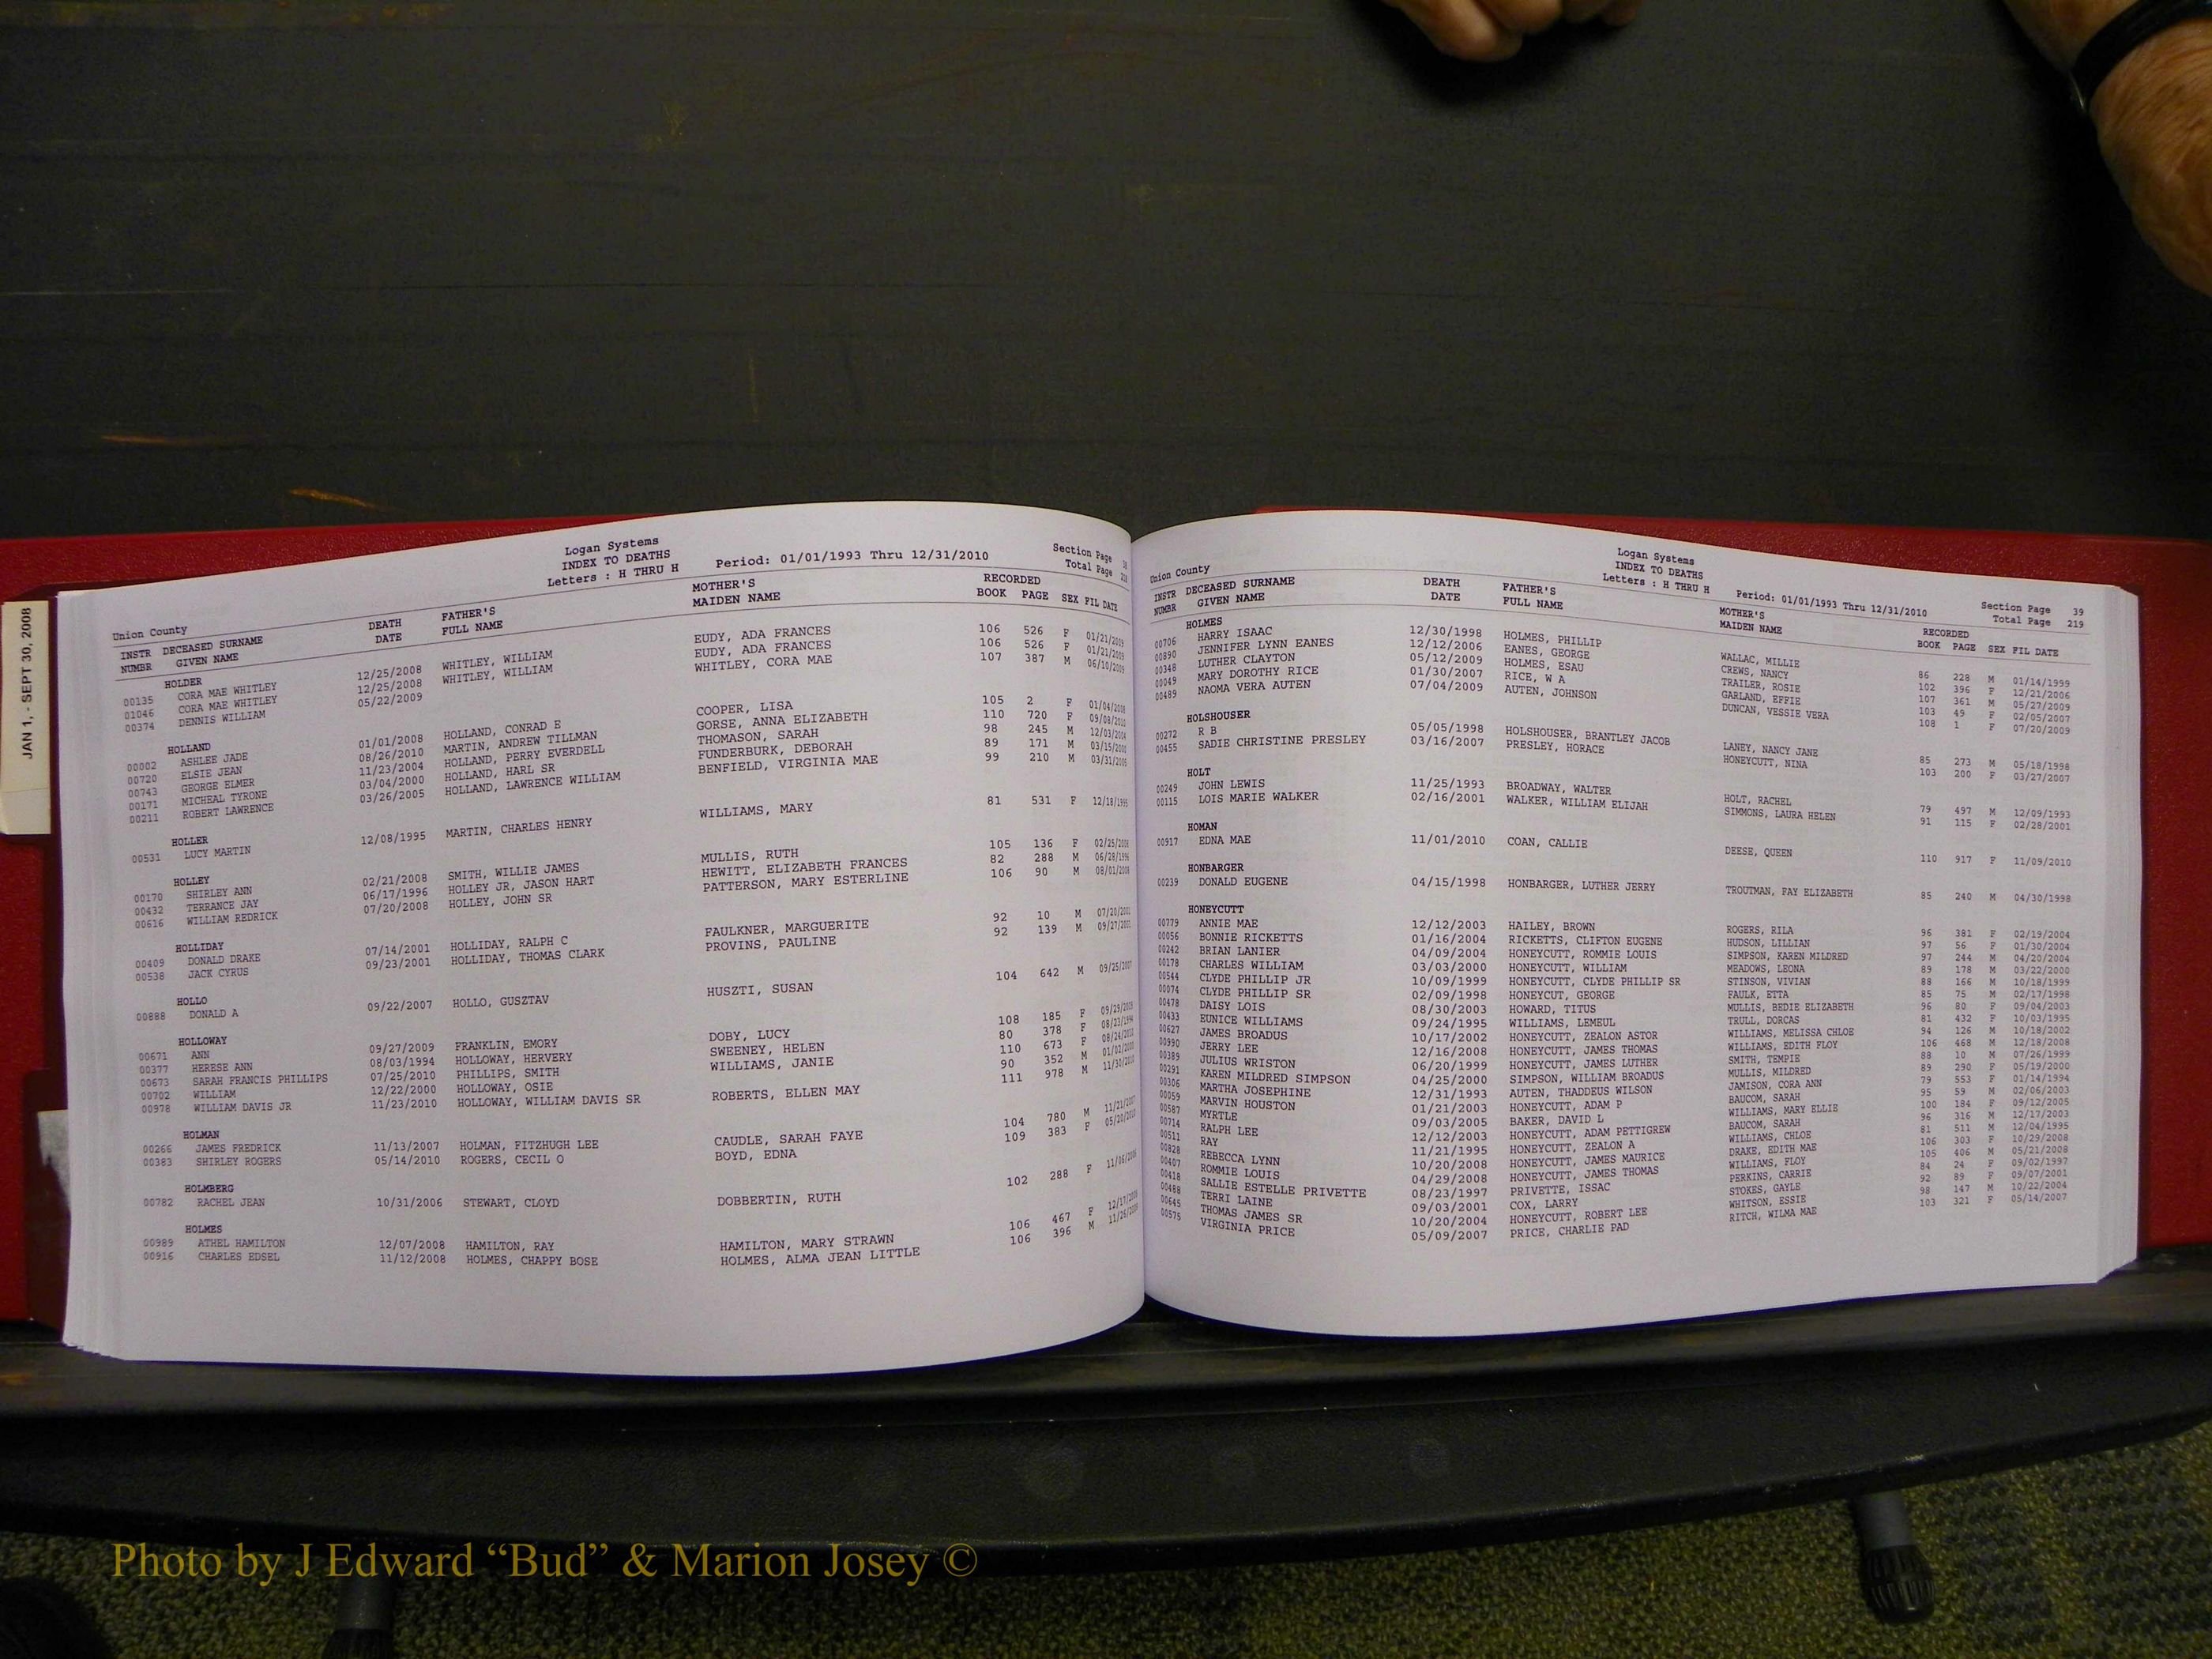 JAN 1, - SEPT 30, 2008
Logan Systems
INDEX TO DEATHS
Letters : H THRU H Period: 01/01/1993 Thru 12/31/2010
Section Page
Total Page
Union County
INSTR DECEASED SURNAME DEATH FATHER'S MOTHER'S RECORDED
NUMBR GIVEN NAME DATE FULL NAME MAIDEN NAME BOOK PAGE SEX FIL DATE
HOLDER
00135 CORA MAE WHITLEY 12/25/2008 WHITLEY, WILLIAM EUDY, ADA FRANCES 106 526 F 01/21/2009
01046 CORA MAE WHITLEY 12/25/2008 WHITLEY, WILLIAM EUDY, ADA FRANCES 106 526 F 01/21/2009
00374 DENNIS WILLIAM 05/22/2009 WHITLEY, CORA MAE 107 387 M 06/10/2009
HOLLAND
00002 ASHLEE JADE 01/01/2008 HOLLAND, CONRAD E COOPER, LISA 105 2 F 01/04/2008
00720 ELSIE JEAN 08/26/2010 MARTIN, ANDREW TILLMAN GORSE, ANNA ELIZABETH 110 720 F 09/08/2010
00743 GEORGE ELMER 11/23/2004 HOLLAND, PERRY EVERDELL THOMASON, SARAH 98 245 M 12/03/2004
00171 MICHEAL TYRONE 03/04/2000 HOLLAND, HARL SR FUNDERBURK, DEBORAH 89 171 M 03/15/2000
00211 ROBERT LAWRENCE 03/26/2005 HOLLAND, LAWRENCE WILLIAM BENFIELD, VIRGINIA MAE 99 210 M 03/31/2005
HOLLER
00531 LUCY MARTIN 12/08/1995 MARTIN, CHARLES HENRY WILLIAMS, MARY 81 531 F 12/18/1995
HOLLEY
00170 SHIRLEY ANN 02/21/2008 SMITH, WILLIE JAMES MULLIS, RUTH 105 136 F 02/25/2008
00432 TERRANCE JAY 06/17/1996 HOLLEY JR, JASON HART HEWITT, ELIZABETH FRANCES 82 288 M 06/28/1996
00616 WILLIAM REDRICK 07/20/2008 HOLLEY, JOHN SR PATTERSON, MARY ESTERLINE 106 90 M 08/01/2008
HOLLIDAY
00409 DONALD DRAKE 07/14/2001 HOLLIDAY, RALPH C FAULKNER, MARGUERITE 92 10 M 07/20/2001
00538 JACK CYRUS 09/23/2001 HOLLIDAY, THOMAS CLARK PROVINS, PAULINE 92 139 M 09/27/2001
HOLLO
00888 DONALD A 09/22/2007 HOLLO, GUSZTAV HUSZTI, SUSAN 104 642 M 09/25/2007
HOLLOWAY
00671 ANN 09/27/2009 FRANKLIN, EMORY DOBY, LUCY 108 185 F 09/29/2009
00377 HERESE ANN 08/03/1994 HOLLOWAY, HERVERY SWEENEY, HELEN 80 378 F 08/23/1994
00673 SARAH FRANCIS PHILLIPS 07/25/2010 PHILLIPS, SMITH WILLIAMS, JANIE 110 673 F 08/24/2010
00702 WILLIAM 12/22/2000 HOLLOWAY, OSIE 90 352 M 01/02/2001
00978 WILLIAM DAVIS JR 11/23/2010 HOLLOWAY, WILLIAM DAVIS SR ROBERTS, ELLEN MAY 111 978 M 11/30/2010
HOLMAN
00266 JAMES FREDRICK 11/13/2007 HOLMAN, FITZHUGH LEE CAUDLE, SARAH FAYE 104 780 M 11/21/2007
00383 SHIRLEY ROGERS 05/14/2010 ROGERS, CECIL O BOYD, EDNA 109 383 F 05/20/2010
HOLMBERG
00782 RACHEL JEAN 10/31/2006 STEWART, CLOYD DOBBERTIN, RUTH 102 288 F 11/06/2006
HOLMES
00989 ATHEL HAMILTON 12/07/2008 HAMILTON, RAY HAMILTON, MARY STRAWN 106 467 F 12/17/2008
00916 CHARLES EDSEL 11/12/2008 HOLMES, CHAPPY BOSE HOLMES, ALMA JEAN LITTLE 106 396 M 11/26/2008
Logan Systems
INDEX TO DEATHS
Letters : H THRU H Period: 01/01/1993 Thru 12/31/2010
Section Page 39
Total Page 219
Union County
INSTR DECEASED SURNAME DEATH FATHER'S MOTHER'S RECORDED
NUMBR GIVEN NAME DATE FULL NAME MAIDEN NAME BOOK PAGE SEX FIL DATE
HOLMES
00706 HARRY ISAAC 12/30/1998 HOLMES, PHILLIP WALLAC, MILLIE 86 228 M 01/14/1999
00890 JENNIFER LYNN EANES 12/12/2006 EANES, GEORGE CREWS, NANCY 102 396 F 12/21/2006
00348 LUTHER CLAYTON 05/12/2009 HOLMES, ESAU TRAILER, ROSIE 107 361 M 05/27/2009
00049 MARY DOROTHY RICE 01/30/2007 RICE, W A GARLAND, EFFIE 103 49 F 02/05/2007
00489 NAOMA VERA AUTEN 07/04/2009 AUTEN, JOHNSON DUNCAN, VESSIE VERA 108 1 F 07/20/2009
HOLSHOUSER
00272 R B 05/05/1998 HOLSHOUSER, BRANTLEY JACOB LANEY, NANCY JANE 85 273 M 05/18/1998
00455 SADIE CHRISTINE PRESLEY 03/16/2007 PRESLEY, HORACE HONEYCUTT, NINA 103 200 F 03/27/2007
HOLT
00249 JOHN LEWIS 11/25/1993 BROADWAY, WALTER HOLT, RACHEL 79 497 M 12/09/1993
00115 LOIS MARIE WALKER 02/16/2001 WALKER, WILLIAM ELIJAH SIMMONS, LAURA HELEN 91 115 F 02/28/2001
HOMAN
00917 EDNA MAE 11/01/2010 COAN, CALLIE DEESE, QUEEN 110 917 F 11/09/2010
HONBARGER
00239 DONALD EUGENE 04/15/1998 HONBARGER, LUTHER JERRY TROUTMAN, FAY ELIZABETH 85 240 M 04/30/1998
HONEYCUTT
00779 ANNIE MAE 12/12/2003 HAILEY, BROWN ROGERS, RILA 96 381 F 02/19/2004
00056 BONNIE RICKETTS 01/16/2004 RICKETTS, CLIFTON EUGENE HUDSON, LILLIAN 97 56 F 01/30/2004
00242 BRIAN LANIER 04/09/2004 HONEYCUTT, ROMMIE LOUIS SIMPSON, KAREN MILDRED 97 244 M 04/20/2004
00178 CHARLES WILLIAM 03/03/2000 HONEYCUTT, WILLIAM MEADOWS, LEONA 89 178 M 03/22/2000
00544 CLYDE PHILLIP JR 10/09/1999 HONEYCUTT, CLYDE PHILLIP SR STINSON, VIVIAN 88 166 M 10/18/1999
00074 CLYDE PHILLIP SR 02/09/1998 HONEYCUT, GEORGE FAULK, ETTA 85 75 M 02/17/1998
00478 DAISY LOIS 08/30/2003 HOWARD, TITUS MULLIS, BEDIE ELIZABETH 96 80 F 09/04/2003
00433 EUNICE WILLIAMS 09/24/1995 WILLIAMS, LEMEUL TRULL, DORCAS 81 432 F 10/03/1995
00627 JAMES BROADUS 10/17/2002 HONEYCUTT, ZEALON ASTOR WILLIAMS, MELISSA CHLOE 94 126 M 10/18/2002
00990 JERRY LEE 12/16/2008 HONEYCUTT, JAMES THOMAS WILLIAMS, EDITH FLOY 106 468 M 12/18/2008
00389 JULIUS WRISTON 06/20/1999 HONEYCUTT, JAMES LUTHER SMITH, TEMPIE 88 10 M 07/26/1999
00291 KAREN MILDRED SIMPSON 04/25/2000 SIMPSON, WILLIAM BROADUS MULLIS, MILDRED 89 290 F 05/19/2000
00306 MARTHA JOSEPHINE 12/31/1993 AUTEN, THADDEUS WILSON JAMISON, CORA ANN 79 553 F 01/14/1994
00059 MARVIN HOUSTON 01/21/2003 HONEYCUTT, ADAM P BAUCOM, SARAH 95 59 M 02/06/2003
00587 MYRTLE 09/03/2005 BAKER, DAVID L WILLIAMS, MARY ELLIE 100 184 F 09/12/2005
00714 RALPH LEE 12/12/2003 HONEYCUTT, ADAM PETTIGREW BAUCOM, SARAH 96 316 M 12/17/2003
00511 RAY 11/21/1995 HONEYCUTT, ZEALON A WILLIAMS, CHLOE 81 511 M 12/04/1995
00828 REBECCA LYNN 10/20/2008 HONEYCUTT, JAMES MAURICE DRAKE, EDITH MAE 106 303 F 10/29/2008
00407 ROMMIE LOUIS 04/29/2008 HONEYCUTT, JAMES THOMAS WILLIAMS, FLOY 105 406 M 05/21/2008
00418 SALLIE ESTELLE PRIVETTE 08/23/1997 PRIVETTE, ISSAC PERKINS, CARRIE 84 24 F 09/02/1997
00488 TERRI LAINE 09/03/2001 COX, LARRY STOKES, GAYLE 92 89 F 09/07/2001
00645 THOMAS JAMES SR 10/20/2004 HONEYCUTT, ROBERT LEE WHITSON, ESSIE 98 147 M 10/22/2004
00575 VIRGINIA PRICE 05/09/2007 PRICE, CHARLIE PAD RITCH, WILMA MAE 103 321 F 05/14/2007
Photo by J Edward “Bud” & Marion Josey ©